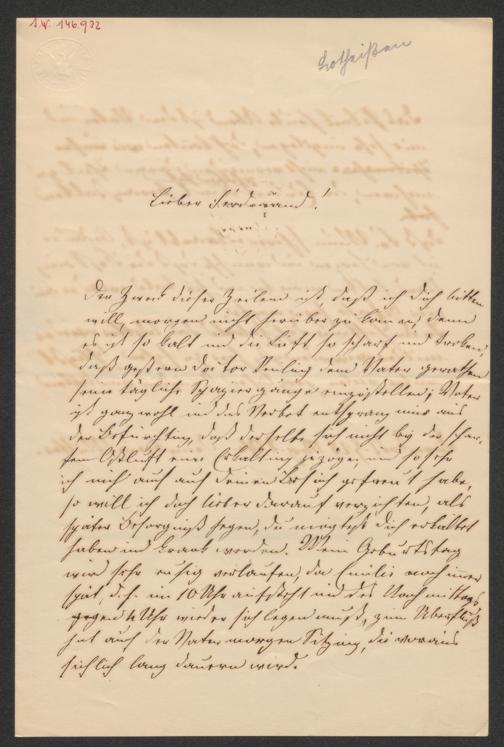 I.N. 146.932
Lotheißen
Lieber Ferdinand!
Der Zweck dieser Zeilen ist, daß ich dich bitten
will, morgen nicht herüber zu kommen, denn
es ist so kalt und die Luft so scharf und trocken,
daß gestern Doctor dem Vater gerathen
seine tägliche Spaziergänge einzustellen; Vater
ist ganz wohl und das Verbot entsprang nur aus
der Befürchtung, daß derselbe sich nicht bei der schar-
fen Ostluft eine Erkältung zuziehe, und so sehr
ich mich auch auf deinen Besuch gefreut habe,
so will ich doch lieber darauf verzichten, als
später Besorgniß hegen, du mögest dich erkältet
haben und krank werden. Mein Geburtstag
wird sehr ruhig verlaufen, da Emilie noch immer
spät, d. h. um 10 Uhr aufsteht und des Nachmittags
gegen 4 Uhr wieder sich legen muß, zum Überfluß
hat auch der Vater morgen Sitzung, die voraus
sichtlich lang dauern wird.